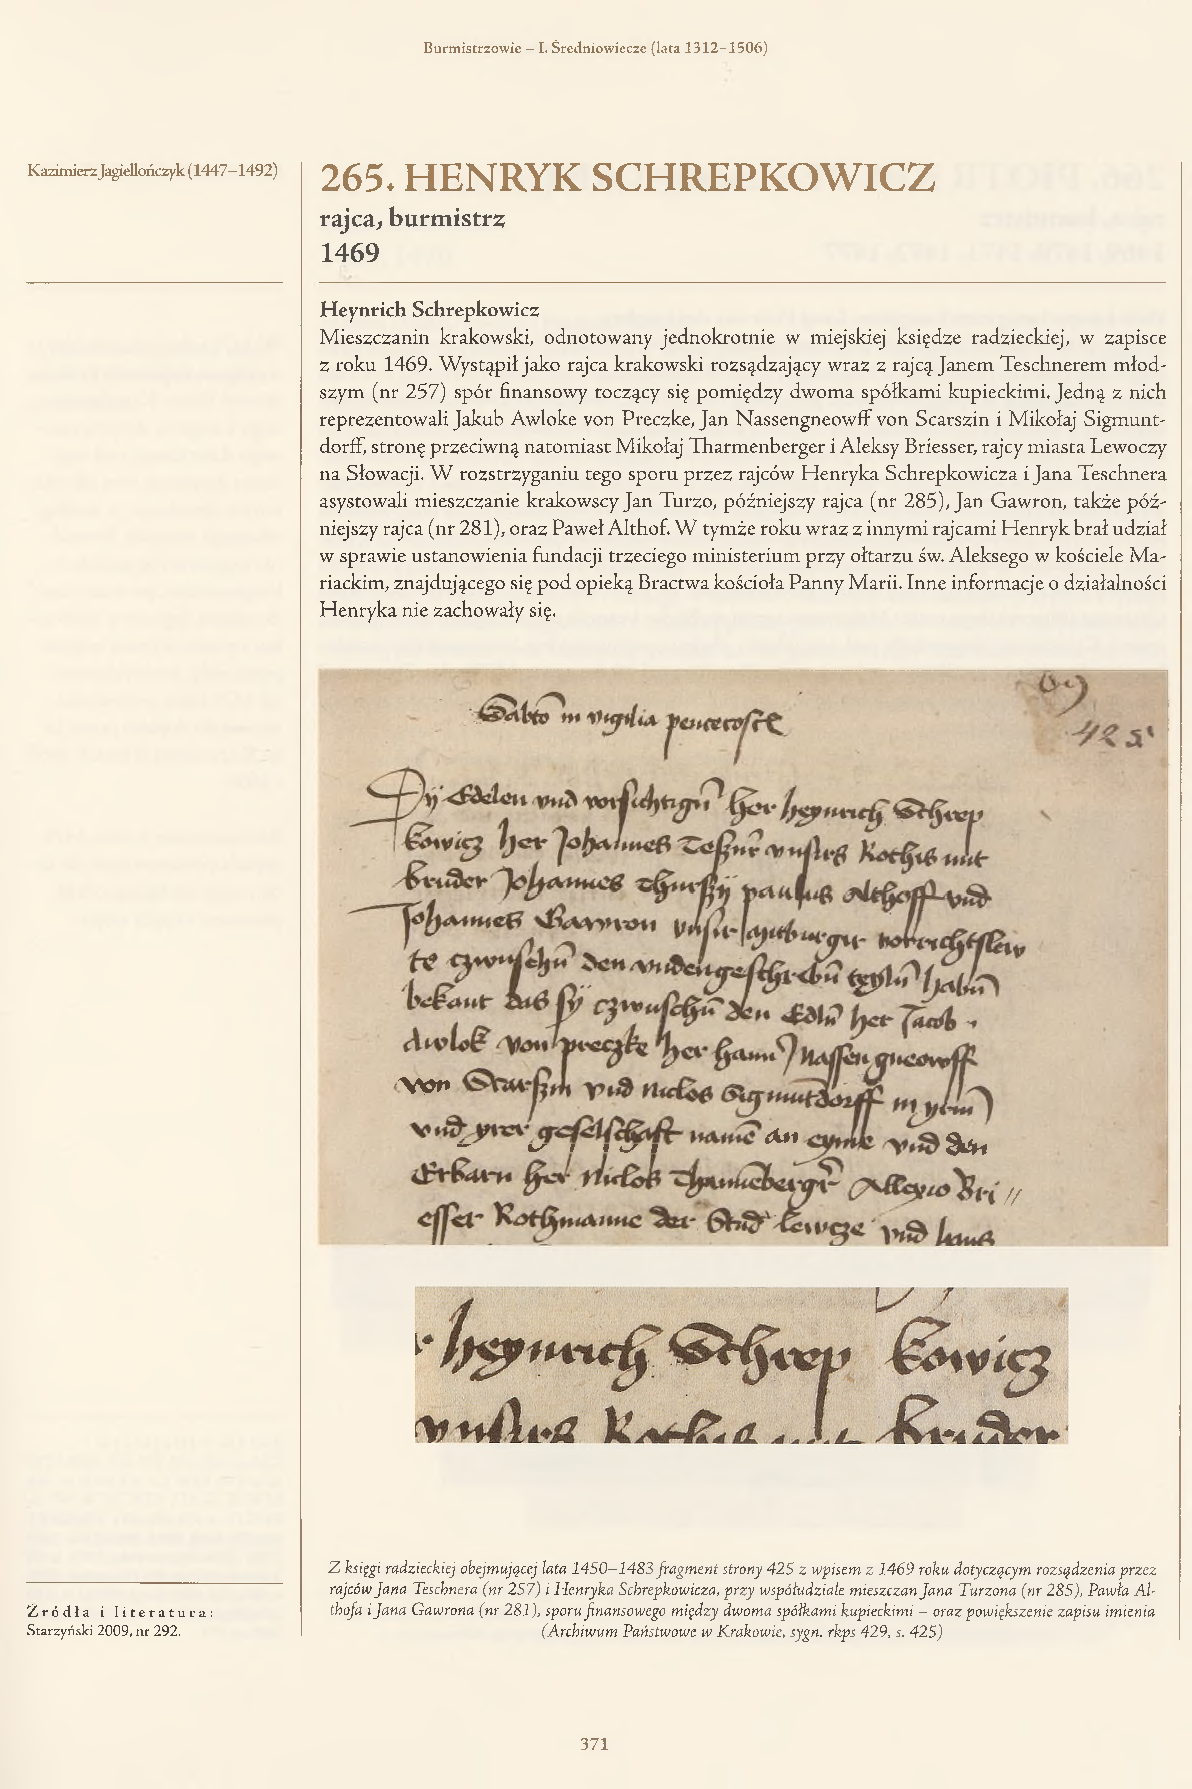 Burmistrzowie – I. Średniowiecze (lata 1312–1506)
Kazimierz Jagiellończyk (1447–1492)
265. HENRYK SCHREPKOWICZ
rajca, burmistrz
1469
Heynrich Schrepkowicz
Mieszczanin krakowski, odnotowany jednokrotnie w miejskiej księdze radzieckiej, w zapisce
z roku 1469. Wystąpił jako rajca krakowski rozsądzający wraz z rajcą Janem Teschnerem młod-
szym (nr 257) spór finansowy toczący się pomiędzy dwoma spółkami kupieckimi. Jedną z nich
reprezentowali Jakub Awloke von Preczke, Jan Nassengneowff von Scarszin i Mikołaj Sigmunt-
dorff, stronę przeciwną natomiast Mikołaj Tharmenberger i Aleksy Briesser, rajcy miasta Lewoczy
na Słowacji. W rozstrzyganiu tego sporu przez rajców Henryka Schrepkowicza i Jana Teschnera
asystowali mieszczanie krakowscy Jan Turzo, późniejszy rajca (nr 285), Jan Gawron, także póź-
niejszy rajca (nr 281), oraz Paweł Althof. W tymże roku wraz z innymi rajcami Henryk brał udział
w sprawie ustanowienia fundacji trzeciego ministerium przy ołtarzu św. Aleksego w kościele Ma-
riackim, znajdującego się pod opieką Bractwa kościoła Panny Marii. Inne informacje o działalności
Henryka nie zachowały się.
69
425
Sabto in vigilia pentecost
Dÿ Edelen vnd vorsichtign her heynrich Schrep
kowicz her Johannes Teszner vnsirs Rothis mit
bruder Johannes Thurszÿ paulus Althoff vnd
Johannes Gawron vnsir mitburger vorrichtslew
te czwuschn den vndengeschrebn teyln habn
bekant das sÿ czwuschn den Edln her Jacob
Awlok von preczke her hann Nassengneowff
von Scarszin vnd niclos Sigmutdorff in yrm
vnd yrer geselschaft name an eyme vnd den
Erbarn her Niclos Thannebergr Allexio Bri //
esser Rothmanne der Stad lewcze vnd hans
heynrich Schrep kowicz
vnsirs Rothis mit bruder
Z księgi radzieckiej obejmującej lata 1450–1483 fragment strony 425 z wpisem z 1469 roku dotyczącym rozsądzenia przez
rajców Jana Teschnera (nr 257) i Henryka Schrepkowicza, przy współudziale mieszczan Jana Turzona (nr 285), Pawła Al-
thofa i Jana Gawrona (nr 281), sporu finansowego między dwoma spółkami kupieckimi – oraz powiększenie zapisu imienia
(Archiwum Państwowe w Krakowie, sygn. rkps 429, s. 425)
Źródła i literatura:
Starzyński 2009, nr 292.
371